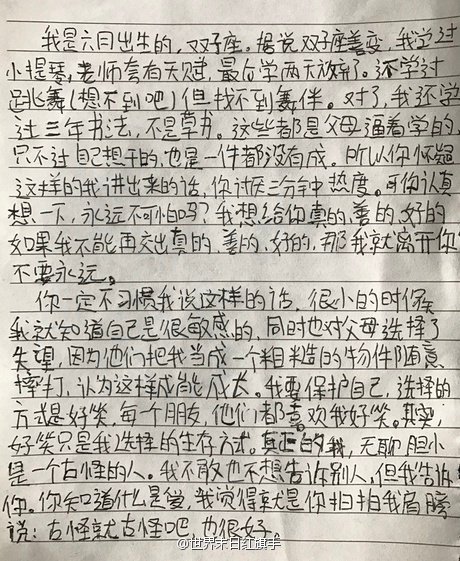 我是六月出生的,双子座。据说双子座善变,我学过
小提琴,老师夸有天赋,最后学两天放弃了。还学过
跳舞(想不到吧)但找不到舞伴。对了,我还学
过三年书法,不是草书。这些都是父母逼着学的,
只不过自己想干的,也是一件都没有成。所以你怀疑
这样的我讲出来的话,你讨厌三分钟热度。可你认真
想一下,永远不可怕吗?我想给你真的、善的、好的
如果我不能再交出真的、善的、好的,那我就离开你
不要永远。
你一定不习惯我说这样的话,很小的时候
我就知道自己是很敏感的,同时也对父母选择了
失望,因为他们把我当成一个粗糙的物件随意
摔打,认为这样成能成长。我要保护自己,选择的
方式是好笑,每一个朋友,他们都喜欢我好笑。其实,
好笑只是我选择的生存方式。真正的我,无聊胆小
是一个古怪的人。我不敢也不想告诉别人,但我告诉
你。你知道什么是爱,我觉得就是你拍拍我肩膀
说:古怪就古怪吧,也很好。
@世界末日红旗手